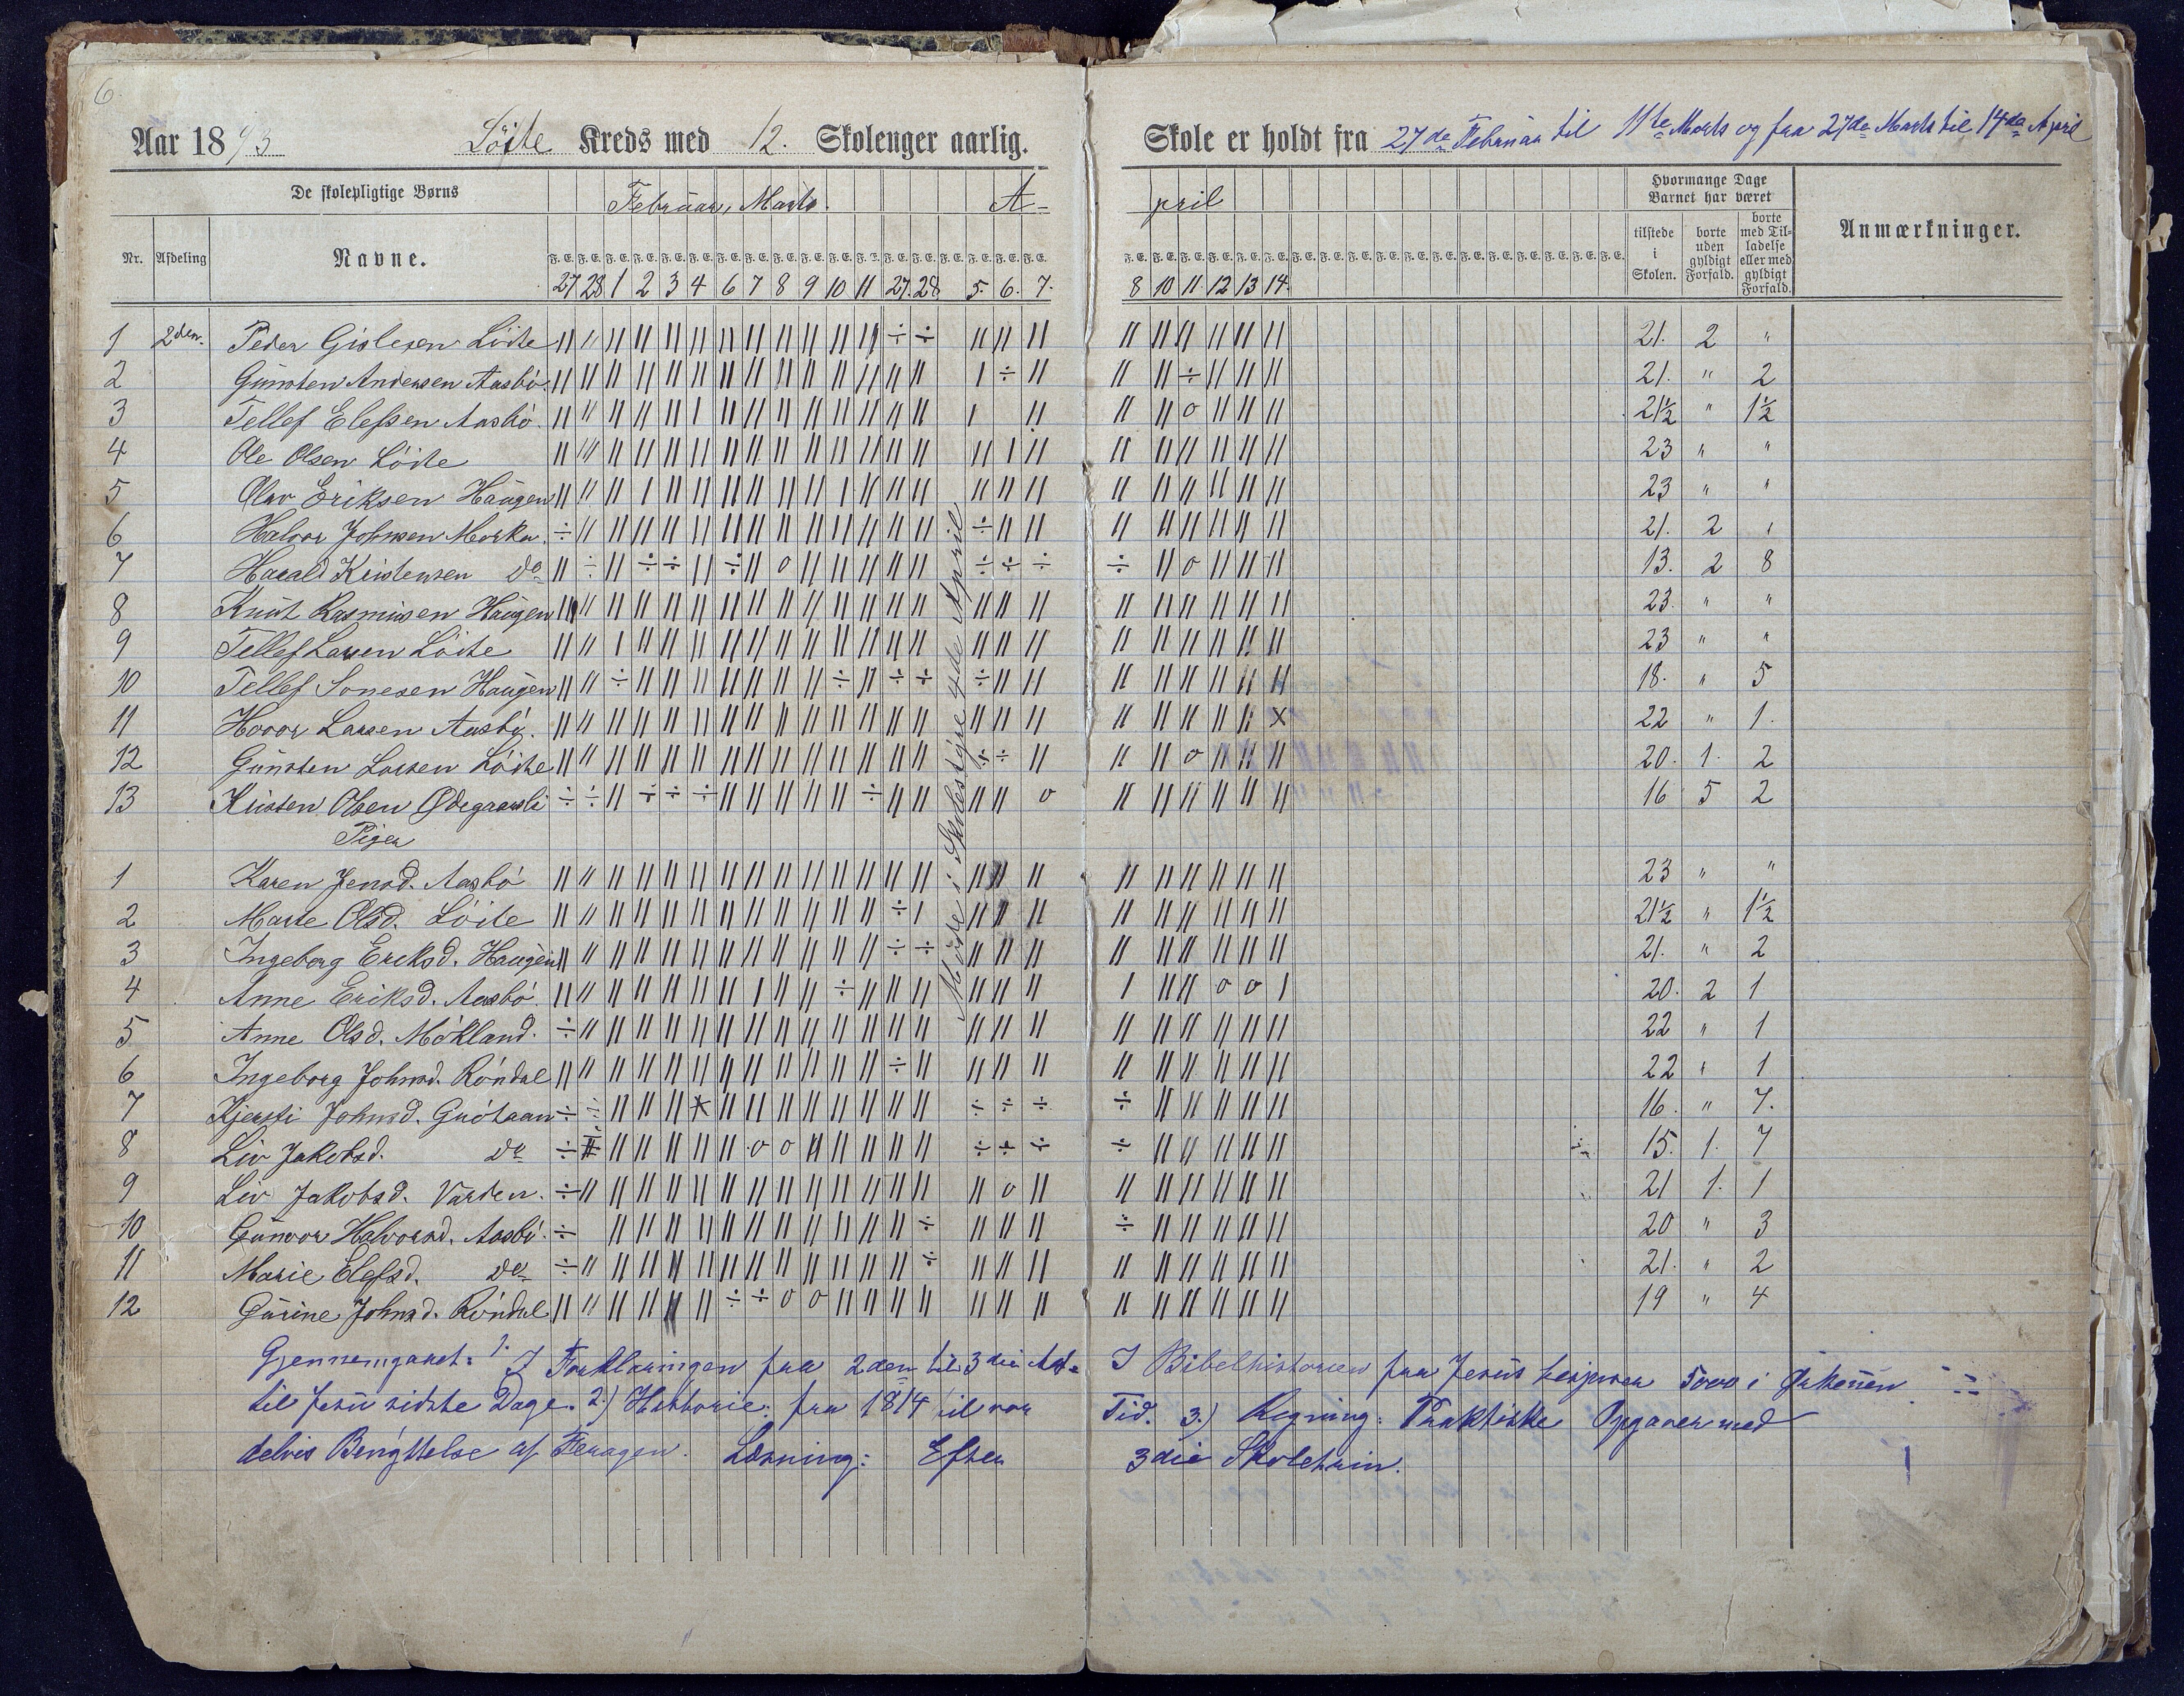 6.
Aar 1893 Löite Kreds med 12. Skolenger aarlig. Skole er holdt fra 27de Februar til 11te Marts og fra 27de Marts til 14de April
De skolepligtige Børns Februar, Marts. A- pril Hvormange Dage Barnet har været
Nr. Afdeling Navne. tilstede i Skolen. borte uden gyldigt Forfald. borte med Tilladelse eller med gyldigt Forfald. Anmærkninger.
27 28 1 2 3 4 6 7 8 9 10 11 27. 28 5. 6. 7. 8 10 11 12 13 14.
1 2den. Peder Gislesen Löite 21. 2 "
2 Gunsten Andersen Aasbö. 21. " 2
3 Tellef Elefsen Aasbö. 21½ " 1½
4 Ole Olsen Löite 23 " "
5 Olav Eriksen Haugen 23 " "
6 Halvor Johnsen Morka. 21. 2 "
7 Harald Kristensen do 13. 2 8
8 Knut Rasmusen Haugen 23. " "
9 Tellef Larsen Löite 23 " "
10 Tellef Sonesen Haugen 18. " 5
11 Hovor Larsen Aasbö. 22 " 1.
12 Gunsten Larsen Löite 20. 1. 2
13 Kristen Olsen Ødegaarsli 16 5 2
Möde i Skolestyre 4de April
Piger
1 Karen Jensd. Aasbö 23 " "
2 Marte Olsd. Löite 21½ " 1½
3 Ingeborg Eriksd. Haugen 21. " 2
4 Anne Eriksd. Aasbö. 20. 2 1
5 Anne Olsd. Mökland. 22 " 1
6 Ingeborg Johnsd. Röndal 22 " 1
7 Kjersti Johnsd. 16. " 7.
8 Liv Jakobsd. do 15. 1. 7
9 Liv Jakobsd. Varden. 21 1. 1
10 Gunvor Halvorsd. Aasbö. 20 " 3
11 Marie Elefsd. do 21. " 2
12 Gurine Johnsd. Röndal 19 " 4
Gjennemgaaet: 1. I Forklaringen fra 2den til 3die Art. I Bibelhistorien fra Jesus bespiser 5000 i Ørkenen
til Jesu sidste Dage. 2.) Historie: fra 1814 til vor Tid. 3.) Regning: Praktiske Opgaver med
delvis Benyttelse af Feragen. Læsning: Efter 3die Skoletrin.